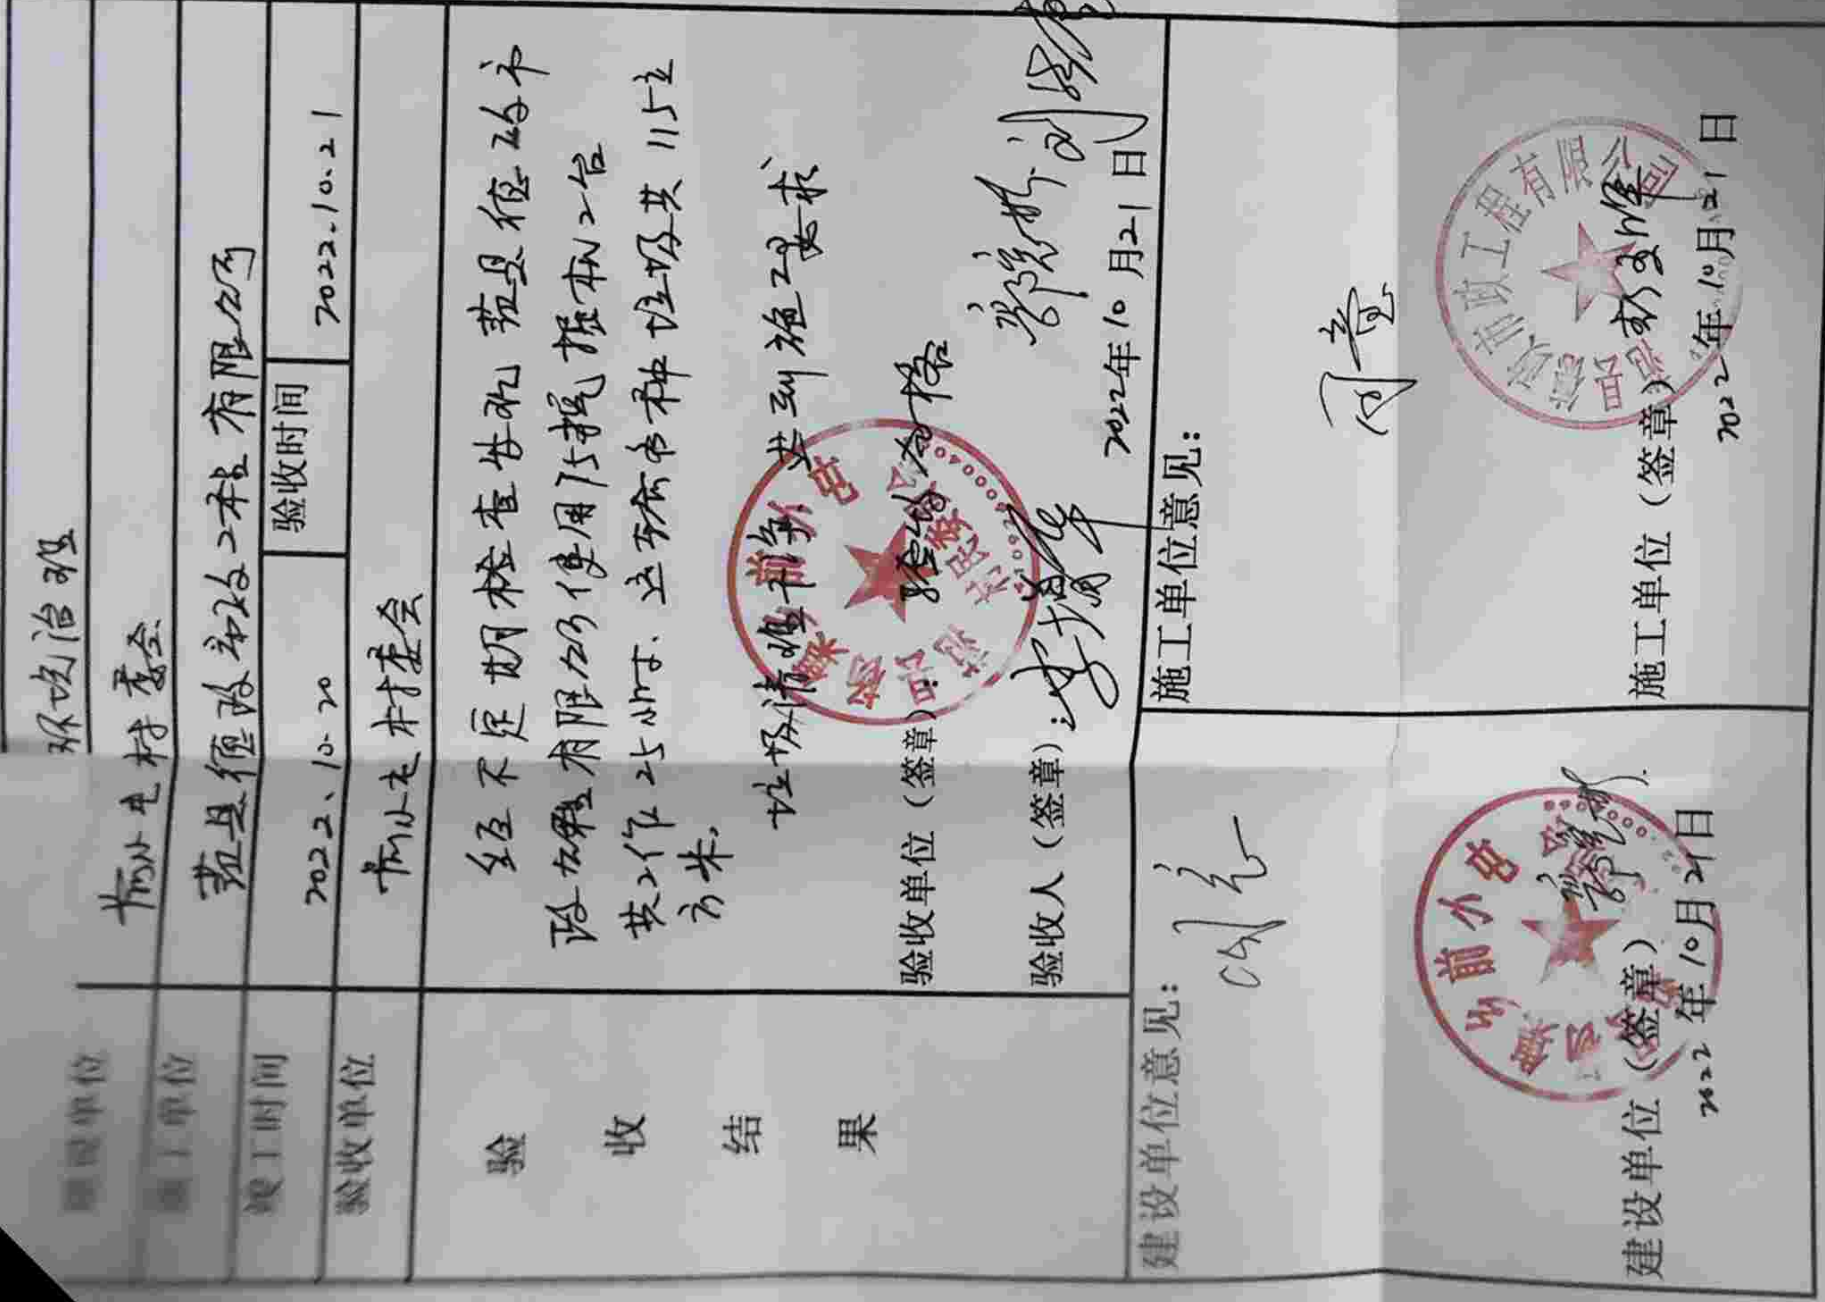 环境治理
建设单位 前小屯村委会
施工单位 范县德政市政工程有限公司
竣工时间 2022.10.20 验收时间 2022.10.21
验收单位 前小屯村委会
验收结果
经不定期检查与现 范县德政市
政工程有限公司使用75挖掘机2台
共工作25小时、运输各种垃圾共115立
方米。
垃圾清理干净 达到施工要求
验收合格
验收单位(签章):
验收人(签章):
2022年10月21日
建设单位意见:
同意
建设单位(签章)
2022年10月21日
施工单位意见:
同意
施工单位(签章)
2022年10月21日
市政工程有限公司